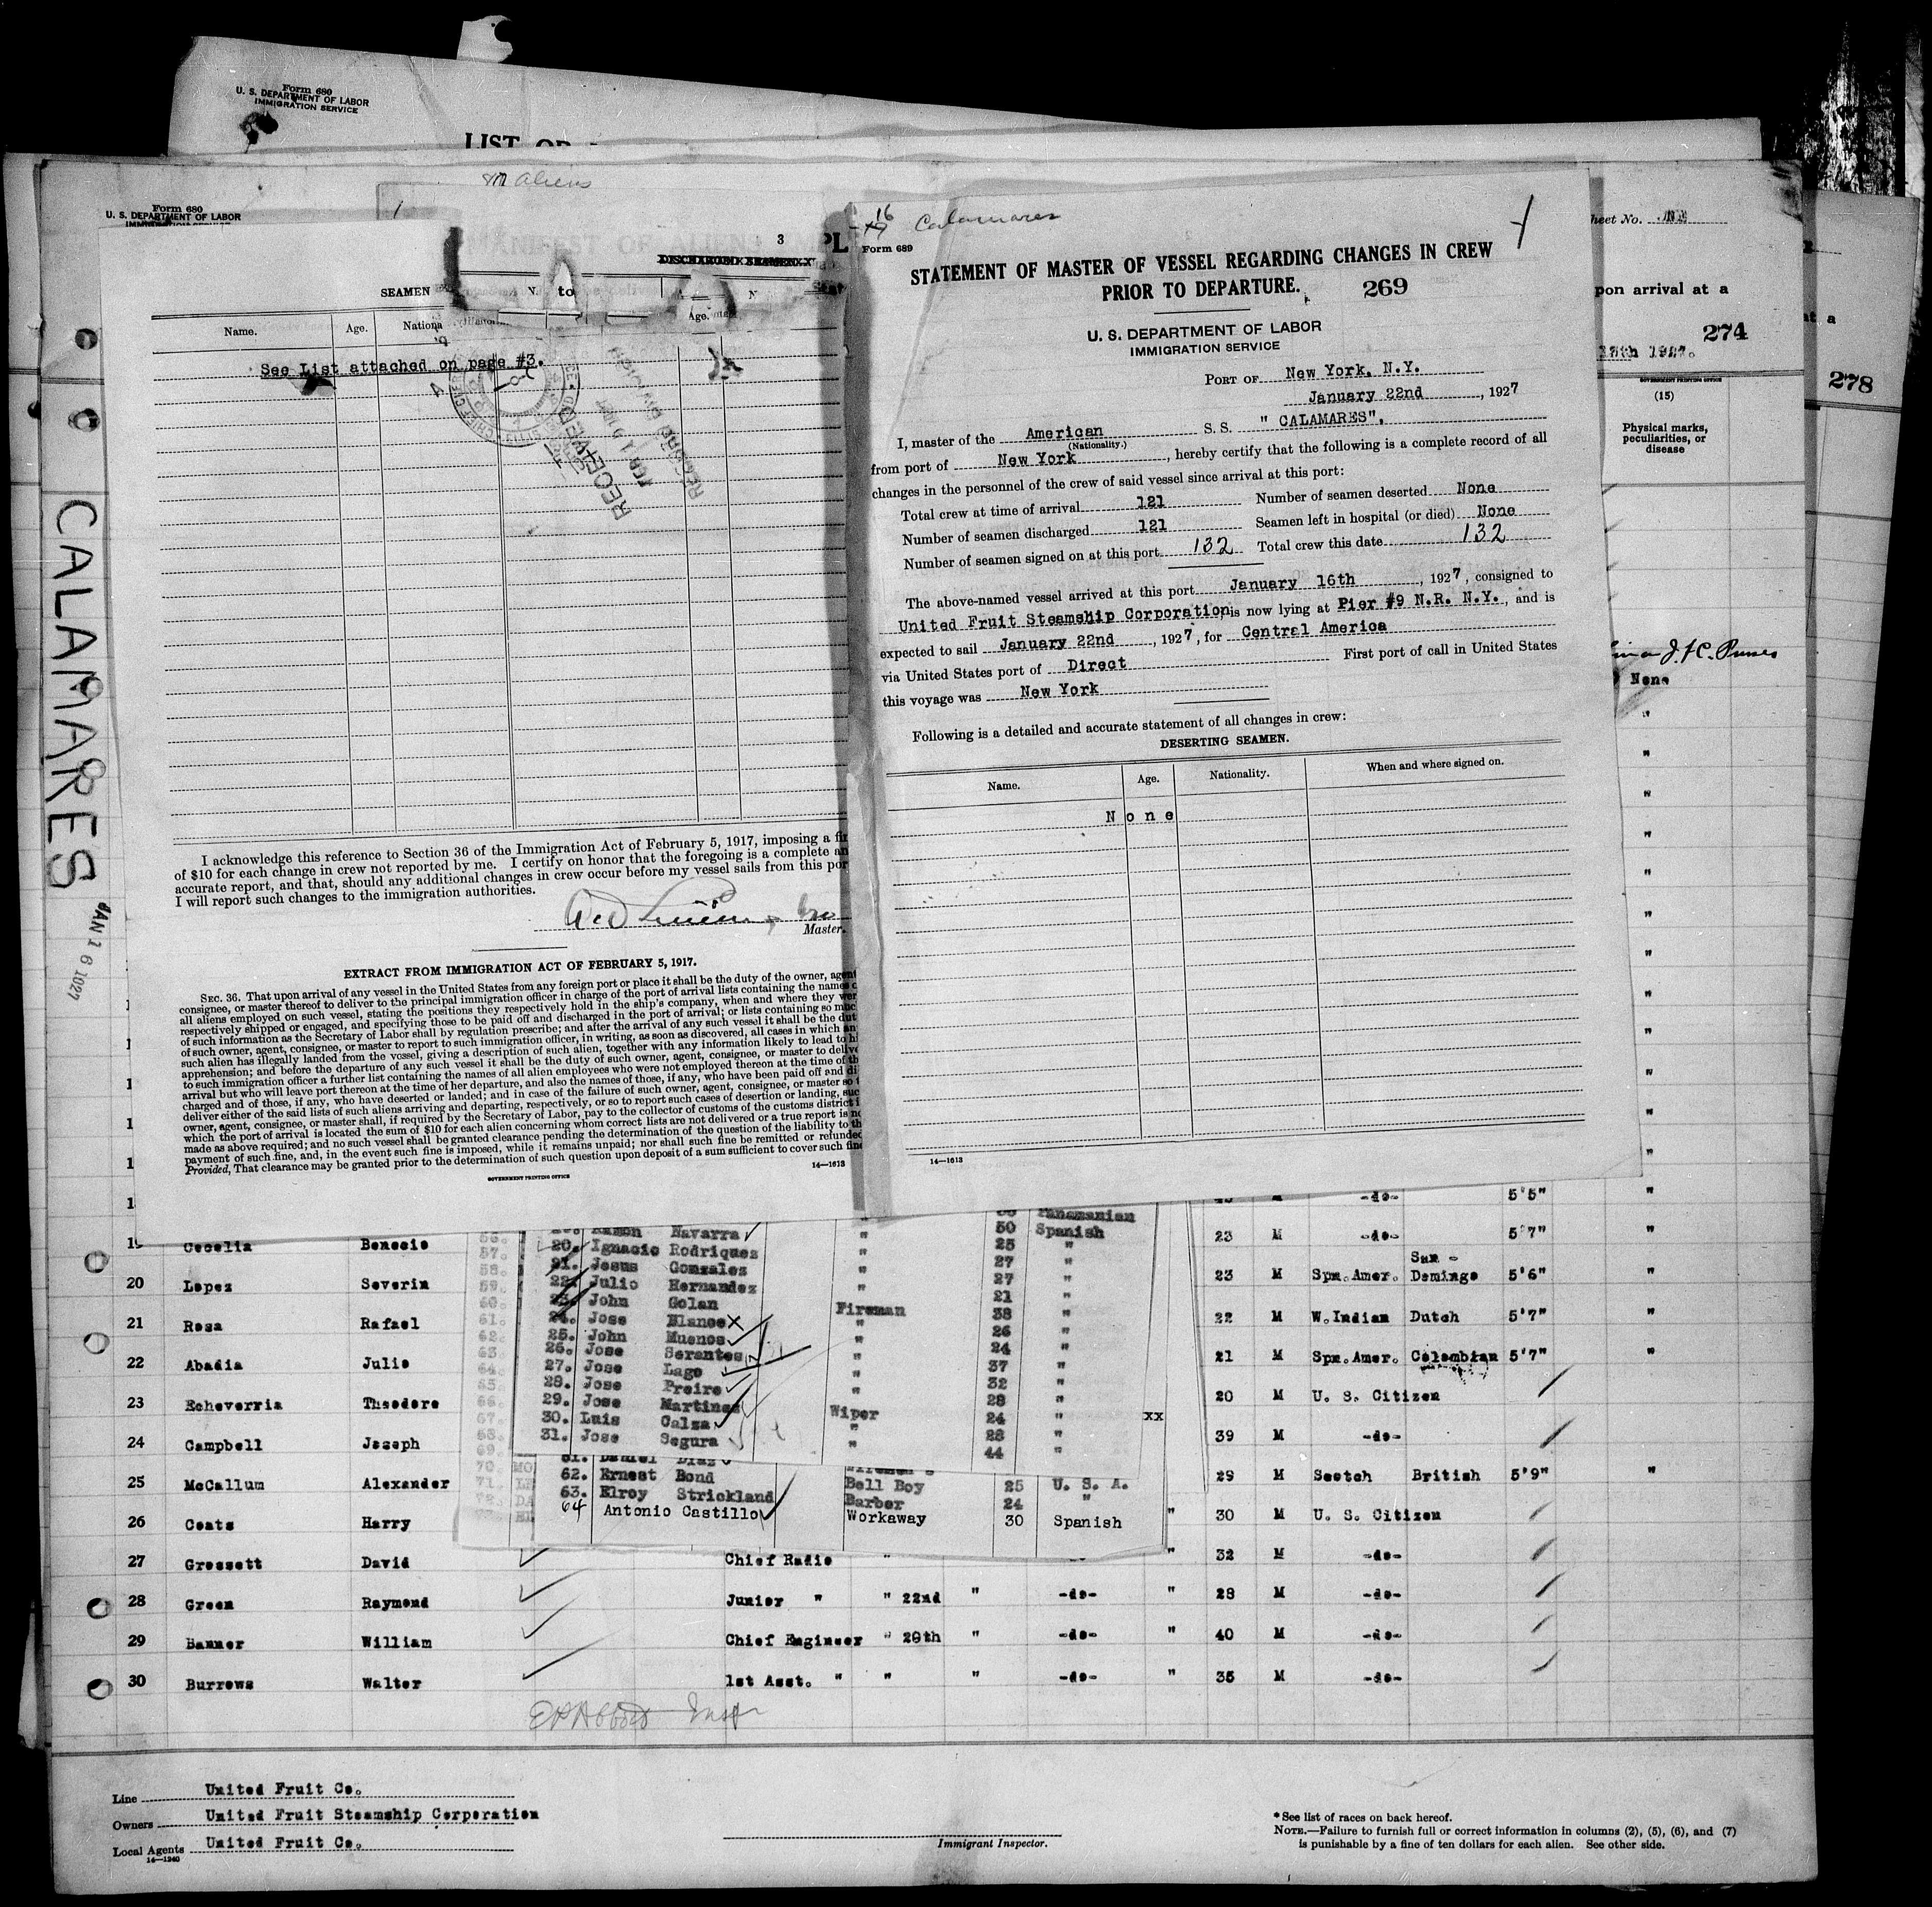 Form 680
U. S. DEPARTMENT OF LABOR
IMMIGRATION SERVICE
LIST OR
aliens
Form 680
U. S. DEPARTMENT OF LABOR
IMMIGRATION SERVICE
CALAMARES
JAN 16 1927
MANIFEST OF ALIENS
3
DISCHARGED SEAMEN
SEAMEN
to
Name. Age. Nationa
Age.
See List attached on page #3.
RECEIVED
I acknowledge this reference to Section 36 of the Immigration Act of February 5, 1917, imposing a fin
of $10 for each change in crew not reported by me. I certify on honor that the foregoing is a complete an
accurate report, and that, should any additional changes in crew occur before my vessel sails from this por
I will report such changes to the immigration authorities.
Master.
EXTRACT FROM IMMIGRATION ACT OF FEBRUARY 5, 1917.
SEC. 36. That upon arrival of any vessel in the United States from any foreign port or place it shall be the duty of the owner, agent
consignee, or master thereof to deliver to the principal immigration officer in charge of the port of arrival lists containing the names o
all aliens employed on such vessel, stating the positions they respectively hold in the ship's company, when and where they wer
respectively shipped or engaged, and specifying those to be paid off and discharged in the port of arrival; or lists containing so muc
of such information as the Secretary of Labor shall by regulation prescribe; and after the arrival of any such vessel it shall be the dut
of such owner, agent, consignee, or master to report to such immigration officer, in writing, as soon as discovered, all cases in which an
such alien has illegally landed from the vessel, giving a description of such alien, together with any information likely to lead to hi
apprehension; and before the departure of any such vessel it shall be the duty of such owner, agent, consignee, or master to delive
to such immigration officer a further list containing the names of all alien employees who were not employed thereon at the time of th
arrival but who will leave port thereon at the time of her departure, and also the names of those, if any, who have been paid off and di
charged and of those, if any, who have deserted or landed; and in case of the failure of such owner, agent, consignee, or master so t
deliver either of the said lists of such aliens arriving and departing, respectively, or so to report such cases of desertion or landing, suc
owner, agent, consignee, or master shall, if required by the Secretary of Labor, pay to the collector of customs of the customs district i
which the port of arrival is located the sum of $10 for each alien concerning whom correct lists are not delivered or a true report is no
made as above required; and no such vessel shall be granted clearance pending the determination of the question of the liability to th
payment of such fine, and, in the event such fine is imposed, while it remains unpaid; nor shall such fine be remitted or refunded
Provided, That clearance may be granted prior to the determination of such question upon deposit of a sum sufficient to cover such fine
14—1613
GOVERNMENT PRINTING OFFICE
16 Calamares
Form 689
STATEMENT OF MASTER OF VESSEL REGARDING CHANGES IN CREW
PRIOR TO DEPARTURE. 269
U. S. DEPARTMENT OF LABOR
IMMIGRATION SERVICE
PORT OF New York, N.Y.
January 22nd, 1927
I, master of the American S. S. "CALAMARES",
(Nationality.)
from port of New York, hereby certify that the following is a complete record of all
changes in the personnel of the crew of said vessel since arrival at this port:
Total crew at time of arrival 121 Number of seamen deserted None
Number of seamen discharged 121 Seamen left in hospital (or died) None
Number of seamen signed on at this port 132 Total crew this date 132
The above-named vessel arrived at this port January 16th, 1927, consigned to
United Fruit Steamship Corporation, is now lying at Pier #9 N.R. N.Y., and is
expected to sail January 22nd, 1927, for Central America
via United States port of Direct First port of call in United States
this voyage was New York
Following is a detailed and accurate statement of all changes in crew:
DESERTING SEAMEN.
Name. Age. Nationality. When and where signed on.
None
14—1613
heet No. ONE
pon arrival at a
274
1927.
GOVERNMENT PRINTING OFFICE
(15)
Physical marks,
peculiarities, or
disease
None
at a
278
-do- 5'5" "
Panamanian
Ramon Navarra " 50 Spanish
20. Ignacio Rodriques " 25 "
21. Jesus Gonzales " 27 "
22. Julio Hernandez " 27 "
23. John Golan 21 "
24. Jose Blanco Fireman 38 "
25. John Muenos " 26 "
26. Jose Serantes " 24 "
27. Jose Lago " 37 "
28. Jose Preire " 32 "
29. Jose Martines 28 "
30. Luis Calza Wiper 24 " xx
31. Jose Segura " 28 "
" 44 "
61. Daniel Diaz
62. Ernest Bond Bell Boy 25 U. S. A.
63. Elroy Strickland Barber 24 "
64 Antonio Castillo Workaway 30 Spanish
19 Cecelia Benecio 23 M -do- 5'7" "
20 Lopez Severin 23 M Spn.Amer. San - Domingo 5'6" "
21 Rosa Rafael 22 M W.Indian Dutch 5'7" "
22 Abadia Julio 21 M Spn.Amer. Colombian 5'7" "
23 Echeverria Theodore 20 M U. S. Citizen
24 Campbell Joseph 39 M -do-
25 McCallum Alexander 29 M Scotch British 5'9" "
26 Coats Harry " 30 M U. S. Citizen
27 Gressett David Chief Radio " " 32 M -do-
28 Green Raymond Junior " " 22nd " -do- " 28 M -do-
29 Banner William Chief Engineer " 20th " -do- " 40 M -do-
30 Burrows Walter 1st Asst. " " " -do- " 35 M -do-
Line United Fruit Co.
Owners United Fruit Steamship Corporation
Local Agents United Fruit Co.
14—1240
Immigrant Inspector.
*See list of races on back hereof.
NOTE.—Failure to furnish full or correct information in columns (2), (5), (6), and (7)
is punishable by a fine of ten dollars for each alien. See other side.